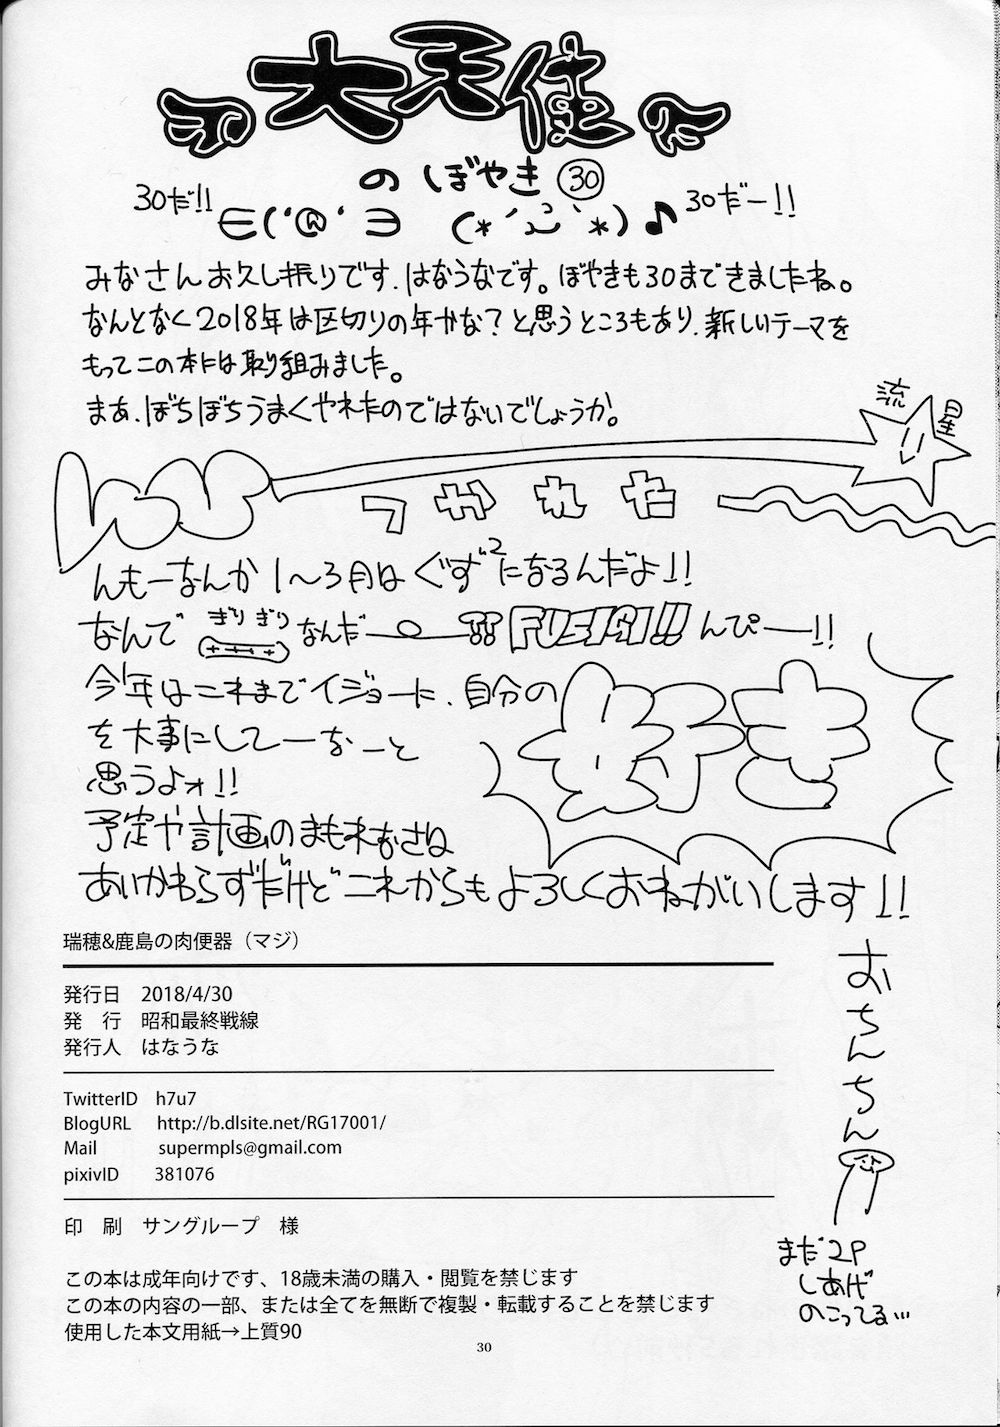 大天使
の ぼやき ㉚
30だ!!
∈('@'∋ (*´ω`*)♪
30だー!!
みなさんお久し振りです、はなうなです。ぼやきも30まできましたね。
なんとなく2018年は区切りの年かな?と思うところもあり、新しいテーマを
もってこの本には取り組みました。
まあ、ぼちぼちうまくやれたのではないでしょうか。
流星
つかれた
んもーなんか1〜3月はぐず²になるんだよ!!
なんで ぎりぎり なんだ FUSIGI!! んぴー!!
今年はこれまでイジョーに、自分の 好き
を大事にしてーなーと
思うよォ!!
予定や計画のまもれなさは
あいかわらずだけどこれからもよろしくおねがいします!!
瑞穂&鹿島の肉便器（マジ）
発行日 2018/4/30
発 行 昭和最終戦線
発行人 はなうな
TwitterID h7u7
BlogURL http://b.dlsite.net/RG17001/
Mail supermpls@gmail.com
pixivID 381076
印 刷 サングループ 様
この本は成年向けです、18歳未満の購入・閲覧を禁じます
この本の内容の一部、または全てを無断で複製・転載することを禁じます
使用した本文用紙→上質90
おちんちん
まだ2P
しあげ
のこってる…
30